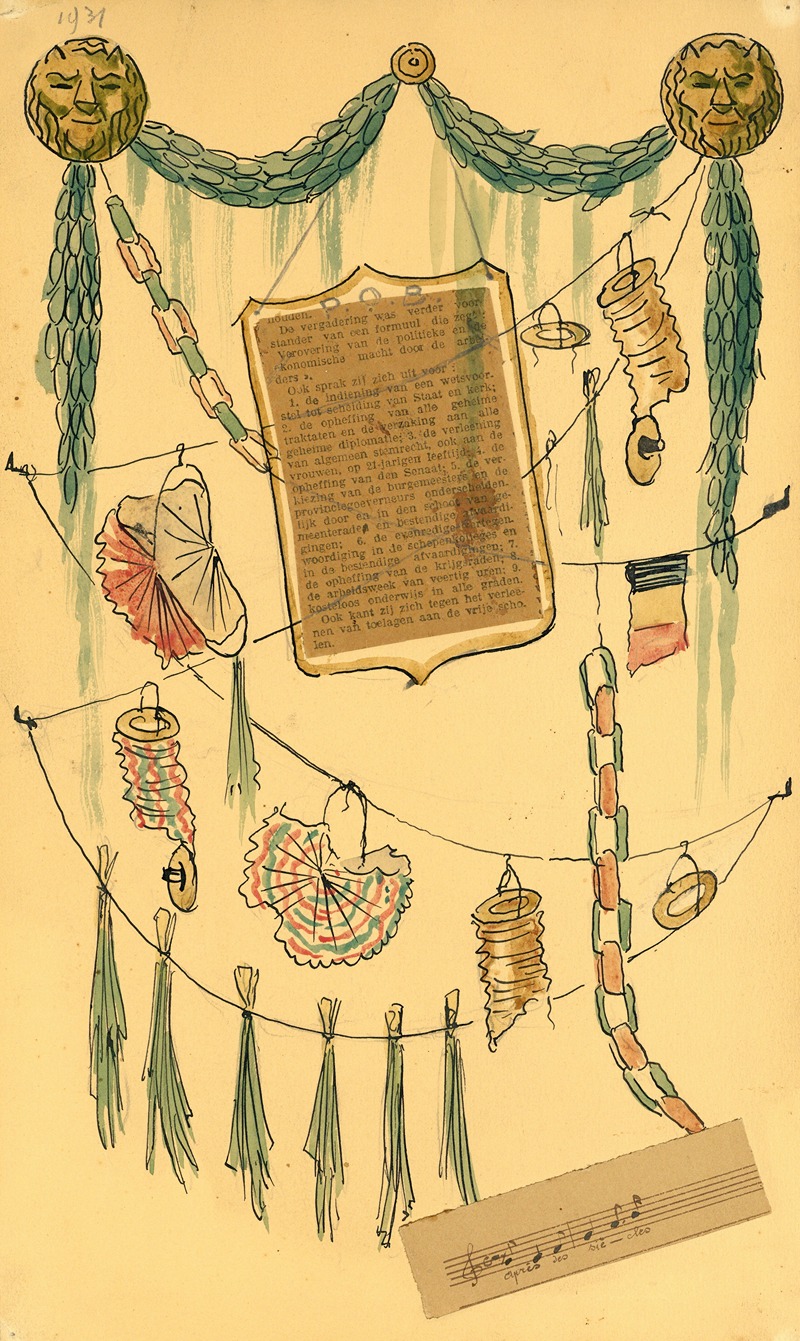 1931
P.O.B.
houden.
De vergadering was verder voor-
stander van een formuul die zegt:
Verovering van de politieke en de
ekonomische macht door de arbei-
ders ».
Ook sprak zij zich uit voor :
1. de indiening van een wetsvoor-
stel tot scheiding van Staat en kerk;
2. de opheffing van alle geheime
traktaten en de verzaking aan alle
geheime diplomatie; 3. de verleening
van algemeen stemrecht, ook aan de
vrouwen, op 21-jarigen leeftijd; 4. de
opheffing van den Senaat; 5. de ver-
kiezing van de burgemeesters en de
provinciegoeverneurs onderscheiden-
lijk door én in den schoot van ge-
meenteraden en bestendige afvaardi-
gingen; 6. de evenredige vertegen-
woordiging in de schepenkolleges en
in de bestendige afvaardigingen; 7.
de opheffing van de krijgsraden; 8.
de arbeidsweek van veertig uren; 9.
kosteloos onderwijs in alle graden.
Ook kant zij zich tegen het verlee-
nen van toelagen aan de vrije scho-
len.
après des siè-cles